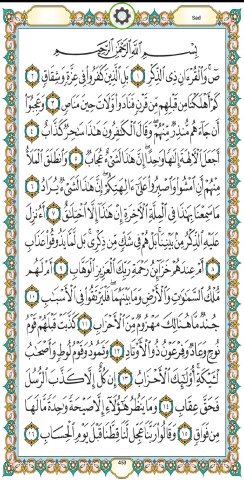 Sad
بِسْمِ اللَّهِ الرَّحْمَٰنِ الرَّحِيمِ
صٓ وَالْقُرْآنِ ذِي الذِّكْرِ ١ بَلِ الَّذِينَ كَفَرُوا فِي عِزَّةٍ وَشِقَاقٍ ٢
كَمْ أَهْلَكْنَا مِن قَبْلِهِم مِّن قَرْنٍ فَنَادَوا وَّلَاتَ حِينَ مَنَاصٍ ٣ وَعَجِبُوا
أَن جَاءَهُم مُّنذِرٌ مِّنْهُمْ وَقَالَ الْكَافِرُونَ هَٰذَا سَاحِرٌ كَذَّابٌ ٤
أَجَعَلَ الْآلِهَةَ إِلَٰهًا وَاحِدًا إِنَّ هَٰذَا لَشَيْءٌ عُجَابٌ ٥ وَانطَلَقَ الْمَلَأُ
مِنْهُمْ أَنِ امْشُوا وَاصْبِرُوا عَلَىٰ آلِهَتِكُمْ إِنَّ هَٰذَا لَشَيْءٌ يُرَادُ ٦
مَا سَمِعْنَا بِهَٰذَا فِي الْمِلَّةِ الْآخِرَةِ إِنْ هَٰذَا إِلَّا اخْتِلَاقٌ ٧ أَءُنزِلَ
عَلَيْهِ الذِّكْرُ مِن بَيْنِنَا بَلْ هُمْ فِي شَكٍّ مِّن ذِكْرِي بَل لَّمَّا يَذُوقُوا عَذَابِ
٨ أَمْ عِندَهُمْ خَزَائِنُ رَحْمَةِ رَبِّكَ الْعَزِيزِ الْوَهَّابِ ٩ أَمْ لَهُم
مُّلْكُ السَّمَاوَاتِ وَالْأَرْضِ وَمَا بَيْنَهُمَا فَلْيَرْتَقُوا فِي الْأَسْبَابِ ١٠
جُندٌ مَّا هُنَالِكَ مَهْزُومٌ مِّنَ الْأَحْزَابِ ١١ كَذَّبَتْ قَبْلَهُمْ قَوْمُ
نُوحٍ وَعَادٌ وَفِرْعَوْنُ ذُو الْأَوْتَادِ ١٢ وَثَمُودُ وَقَوْمُ لُوطٍ وَأَصْحَابُ
لْـَٔيْكَةِ أُولَٰئِكَ الْأَحْزَابُ ١٣ إِن كُلٌّ إِلَّا كَذَّبَ الرُّسُلَ
فَحَقَّ عِقَابِ ١٤ وَمَا يَنظُرُ هَٰؤُلَاءِ إِلَّا صَيْحَةً وَاحِدَةً مَّا لَهَا
مِن فَوَاقٍ ١٥ وَقَالُوا رَبَّنَا عَجِّل لَّنَا قِطَّنَا قَبْلَ يَوْمِ الْحِسَابِ ١٦
453